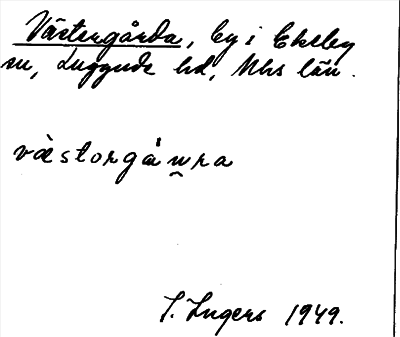 Västergårda, by i Ekeby
sn, Luggude hd, Mhs län.
västorgån̯ra
I. Ingers 1949.